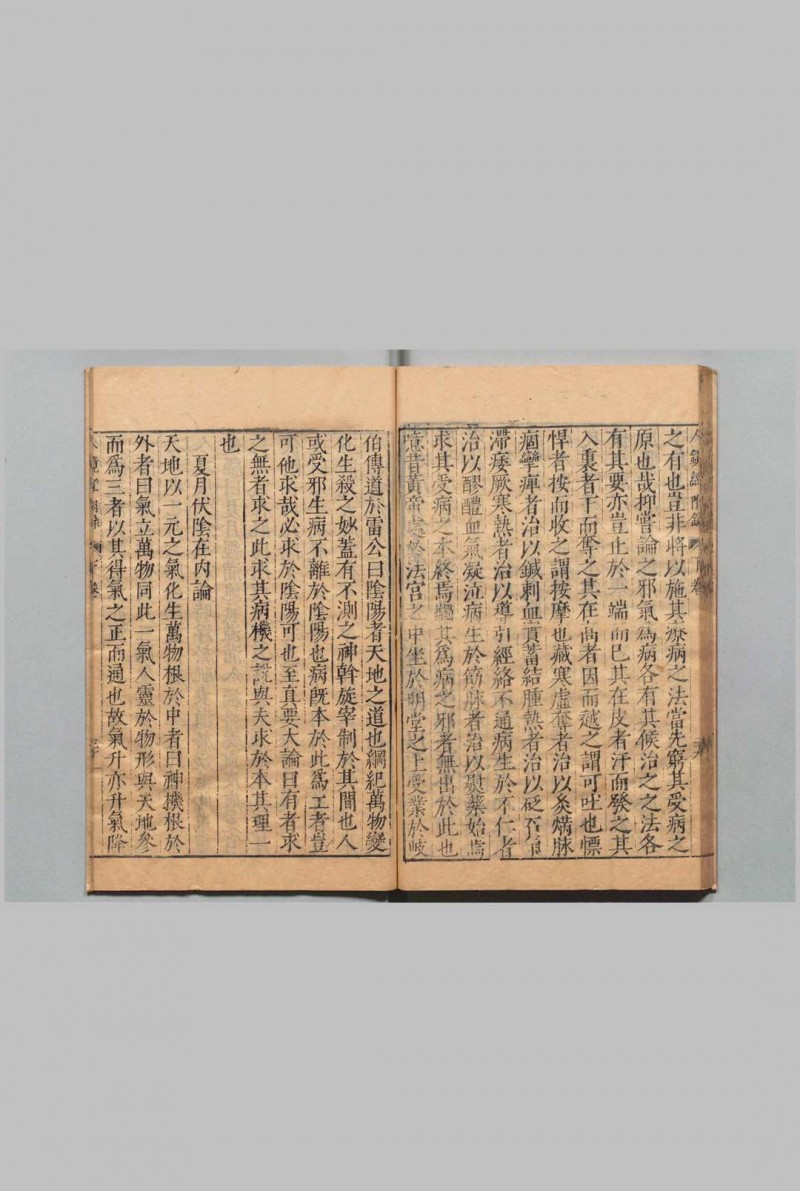 之有也豈非將以施其療病之法當先窮其受病之
原也哉抑嘗論之邪氣為病各有其候治之之法各
有其要亦豈止於一端而已其在皮者汗而發之其
入裏者下而奪之其在高者因而越之謂可吐也慓
悍者按而收之謂按摩也藏寒虛奪者治以灸焫脉
痼攣痺者治以鍼刺血實蓄結腫熱者治以砭石
滯痿厥寒熱者治以導引經絡不通病生於不仁者
治以醪醴血氣凝泣病生於筋脉者治以熨藥始焉
求其受病之本終焉蠲其為病之邪者無出於此也
昔黃帝處於法宮之中坐於明堂之上受業於岐
伯傳道於雷公曰陰陽者天地之道也綱紀萬物變
化生殺之妙蓋有不測之神斡旋宰制於其間也人
或受邪生病不離於陰陽也病既本於此為工者豈
可他求哉必求於陰陽可也至真要大論曰有者求
之無者求之此求其病機之說與夫求於本其理一
也
夏月伏陰在内論
天地以一元之氣化生萬物根於中者曰神機根於
外者曰氣立萬物同此一氣人靈於物形與天地參
而為三者以其得氣之正而通也故氣升亦升氣降